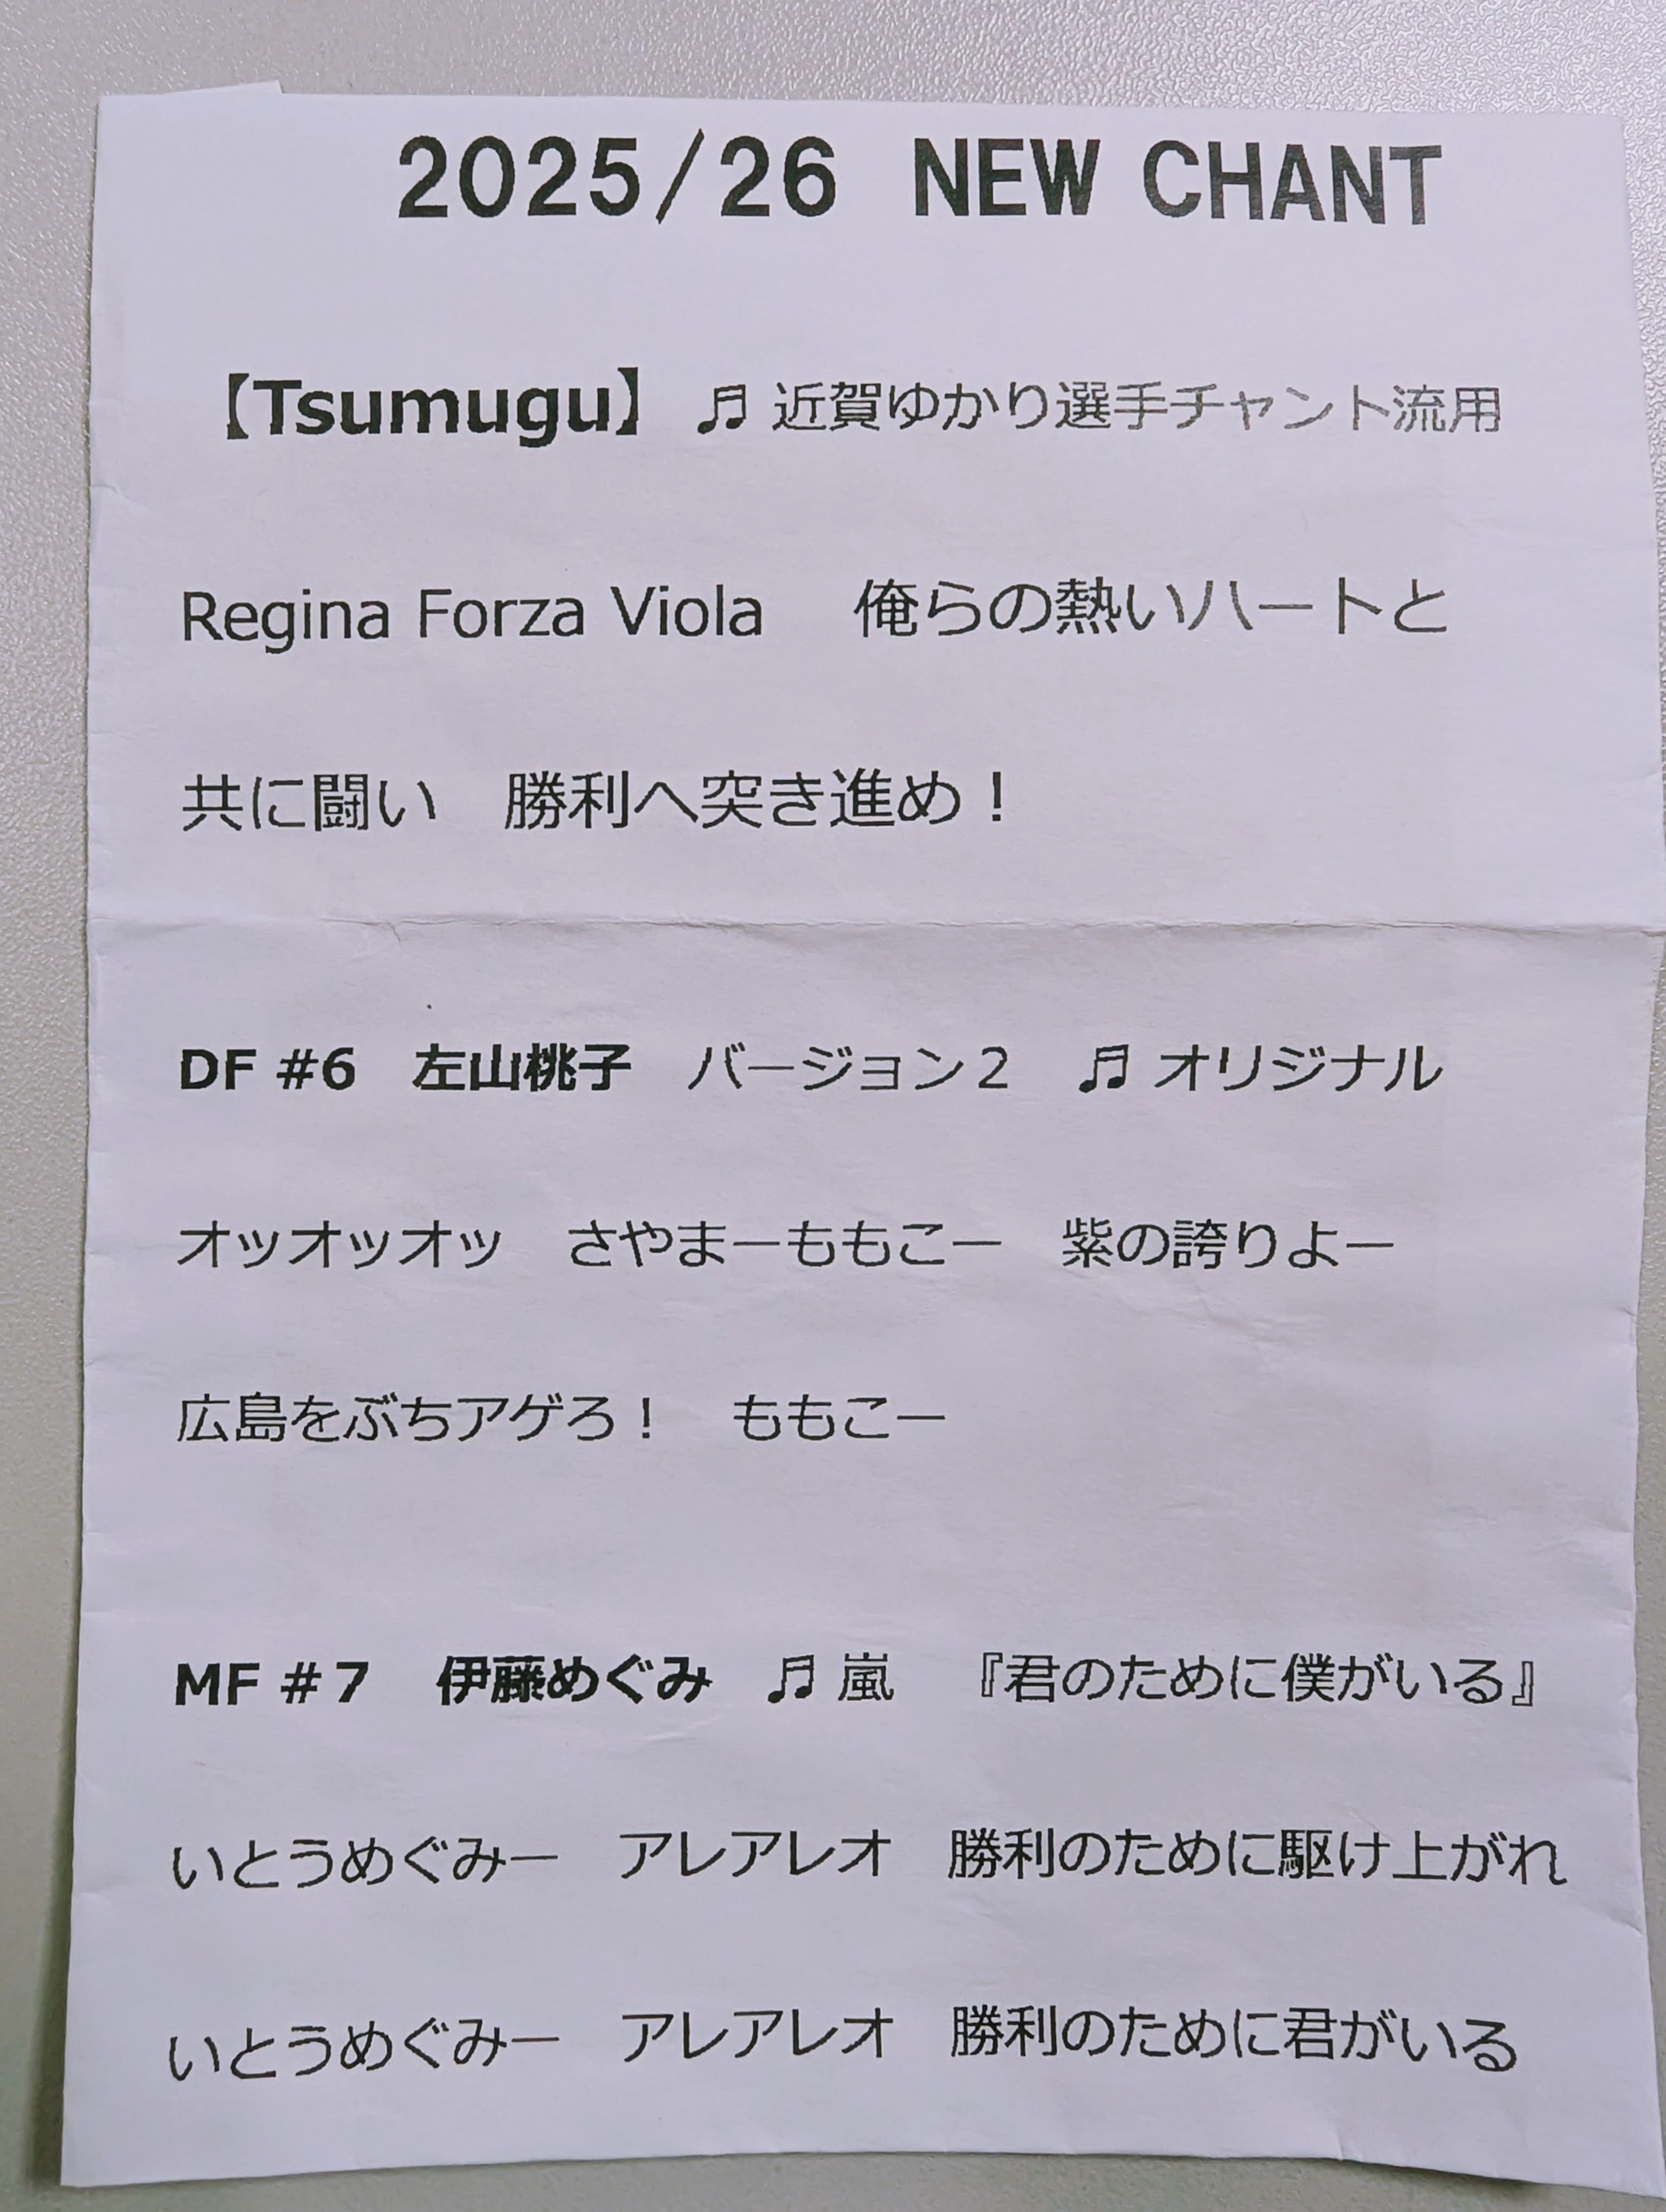 2025/26 NEW CHANT
【Tsumugu】 ♬ 近賀ゆかり選手チャント流用
Regina Forza Viola　俺らの熱いハートと
共に闘い　勝利へ突き進め！
DF #6　左山桃子　バージョン２　♬ オリジナル
オッオッオッ　さやまーももこー　紫の誇りよー
広島をぶちアゲろ！　ももこー
MF #７　伊藤めぐみ　♬ 嵐　『君のために僕がいる』
いとうめぐみー　アレアレオ　勝利のために駆け上がれ
いとうめぐみー　アレアレオ　勝利のために君がいる